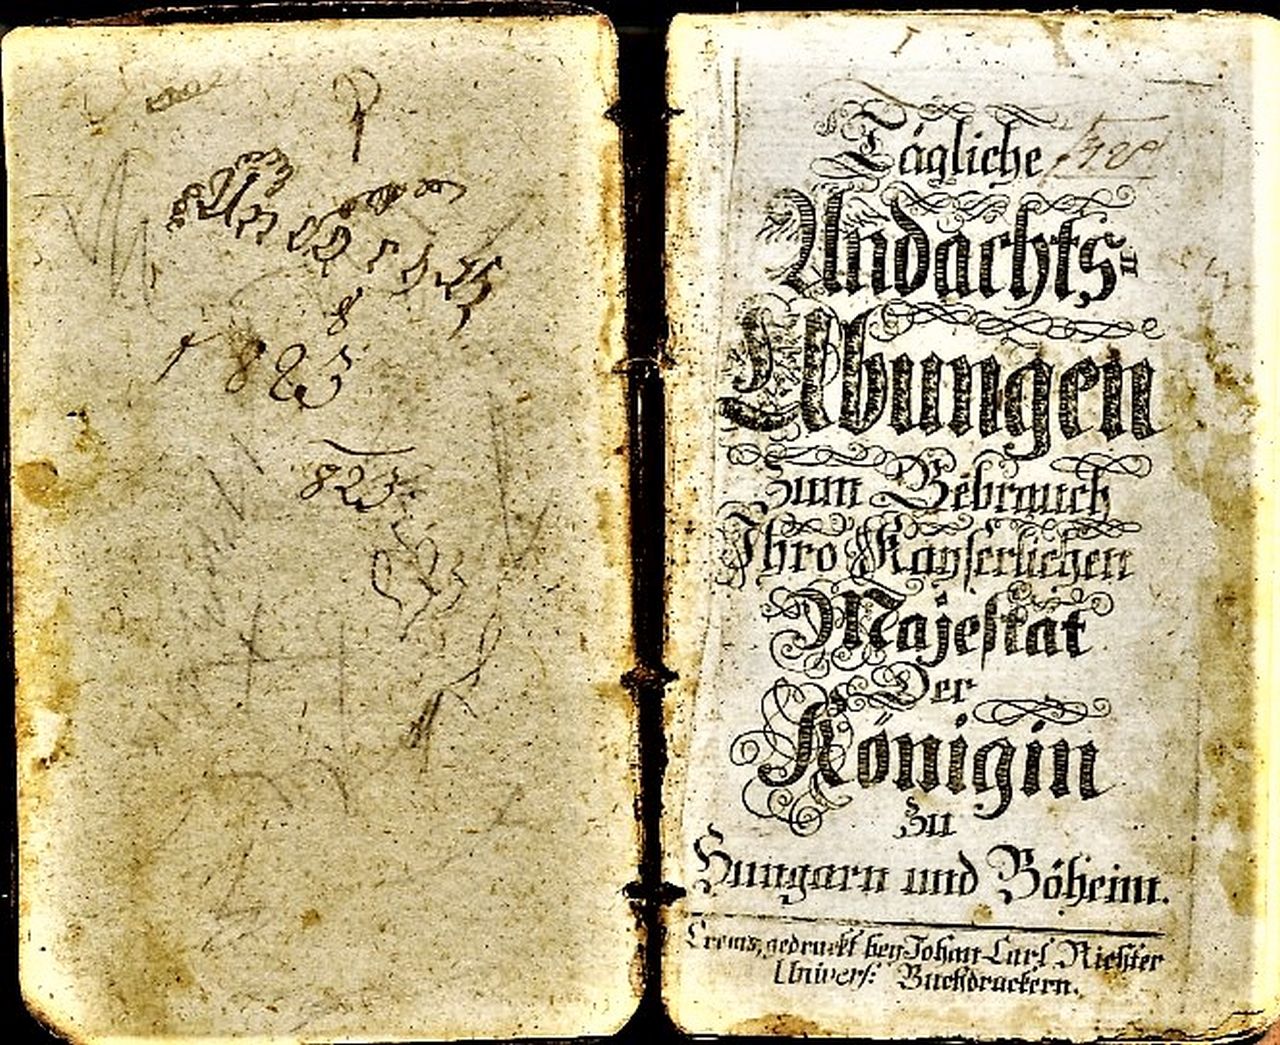 1823
823
Tägliche
Andachts=
Übungen
Zum Gebrauch
Ihro Kayserlichen
Majestät
Der
Königin
Zu
Hungarn und Böheim.
Crems, gedruckt bey Johan Carl Richter
Univers: Buchdruckern.